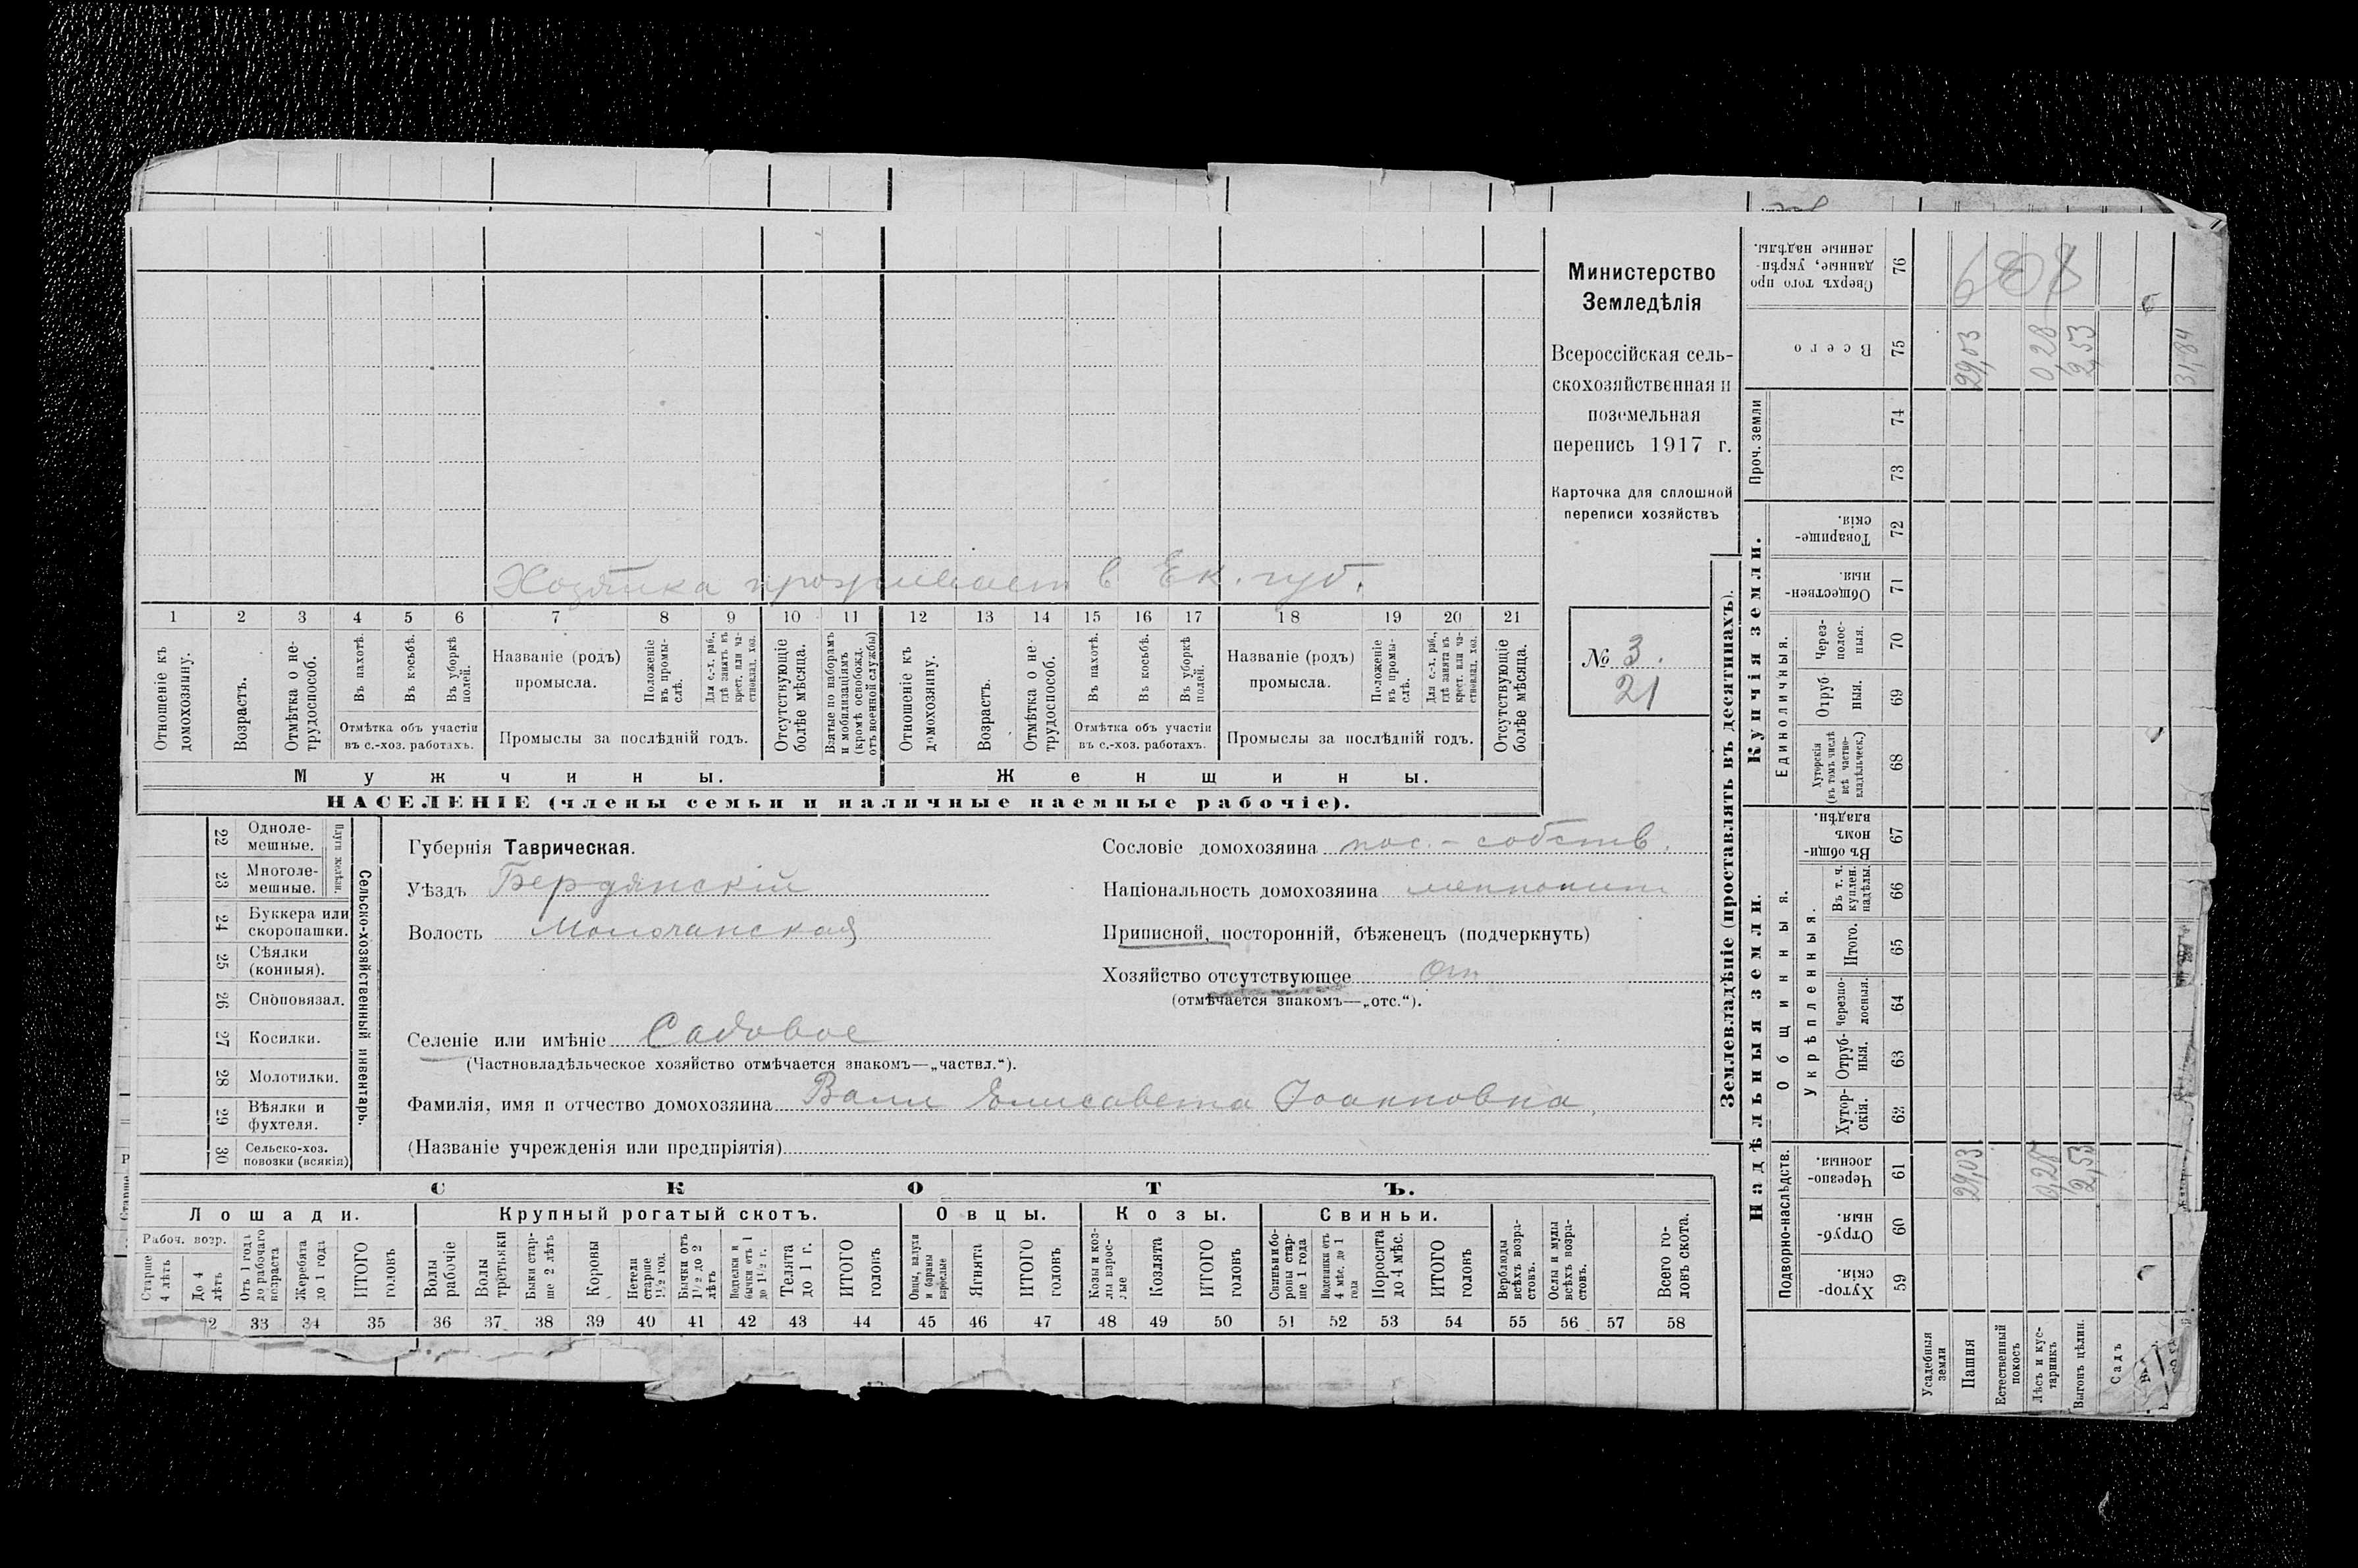 Хозяйка проживает в Ек. губ.
1 2 3 4 5 6 7 8 9 10 11 12 13 14 15 16 17 18 19 20 21
Отношеніе къ домохозяину.
Возрастъ.
Отмѣтка о не-
трудоспособ.
Въ пахотѣ.
Въ косьбѣ.
Въ уборкѣ
полей.
Отмѣтка объ участіи
въ с.-хоз. работахъ.
Названіе (родъ)
промысла.
Положеніе
въ промы-
слѣ.
Для с.-х. раб.,
гдѣ занятъ въ
крест. или ча-
стновлад. хоз.
Промыслы за послѣдній годъ.
Отсутствующіе
болѣе мѣсяца.
Взятые по наборамъ
и мобилизаціямъ
(кромѣ освобожд.
отъ военной службы)
Отношеніе къ
домохозяину.
Возрастъ.
Отмѣтка о не-
трудоспособ.
Въ пахотѣ.
Въ косьбѣ.
Въ уборкѣ
полей.
Отмѣтка объ участіи
въ с.-хоз. работахъ.
Названіе (родъ)
промысла.
Положеніе
въ промы-
слѣ.
Для с.-х. раб.,
гдѣ занята въ
крест. или ча-
стновлад. хоз.
Промыслы за послѣдній годъ.
Отсутствующіе
болѣе мѣсяца.
Мужчины.
Женщины.
НАСЕЛЕНІЕ (члены семьи и наличные наемные рабочіе).
Министерство
Земледѣлія
Всероссійская сель-
скохозяйственная и
поземельная
перепись 1917 г.
Карточка для сплошной
переписи хозяйствъ
№ 3.
21
22 Одноле-
мешные.
23 Многоле-
мешные.
Плуги желѣзн.
24 Буккера или
скоропашки.
25 Сѣялки
(конныя).
26 Сноповязал.
27 Косилки.
28 Молотилки.
29 Вѣялки и
фухтеля.
30 Сельско-хоз.
повозки (всякія)
Сельско-хозяйственный инвентарь.
Губернія Таврическая.
Уѣздъ Бердянскій
Волость Молочанская
Сословіе домохозяина пос.-собств.
Національность домохозяина меннонит
Приписной, посторонній, бѣженецъ (подчеркнуть)
Хозяйство отсутствующее Отс
(отмѣчается знакомъ—„отс.“).
Селеніе или имѣніе Садовое
(Частновладѣльческое хозяйство отмѣчается знакомъ—„частвл.“).
Фамилія, имя и отчество домохозяина Валл Елисавета Іоанновна,
(Названіе учрежденія или предпріятія)
СКОТЪ.
Лошади.
Крупный рогатый скотъ.
Овцы.
Козы.
Свиньи.
Рабоч. возр.
Старше
4 лѣтъ
До 4
лѣтъ
Отъ 1 года
до рабочаго
возраста
Жеребята
до 1 года
ИТОГО
головъ
Волы
рабочіе
Волы
третьяки
Быки стар-
ше 2 лѣтъ
Коровы
Нетели
старше
1½ год.
Бычки отъ
1½ до 2
лѣтъ
Подтелки и
бычки отъ 1
до 1½ г.
Телята
до 1 г.
ИТОГО
головъ
Овцы, валухи
и бараны
взрослые
Ягнята
ИТОГО
головъ
Козы и коз-
лы взрос-
лые
Козлята
ИТОГО
головъ
Свиньи и бо-
ровы стар-
ше 1 года
Подсвинки отъ
4 мѣс. до 1
года
Поросята
до 4 мѣс.
ИТОГО
головъ
Верблюды
всѣхъ возра-
стовъ.
Ослы и мулы
всѣхъ возра-
стовъ.
Всего го-
ловъ скота.
32 33 34 35 36 37 38 39 40 41 42 43 44 45 46 47 48 49 50 51 52 53 54 55 56 57 58
Землевладѣніе (проставлять въ десятинахъ).
Купчія земли.
Надѣльныя земли.
Сверхъ того про
данные, укрѣп-
ленные надѣлы.
76
Всего
75
29,03
0,28
2,53
31,84
Проч. земли
74
73
Товарище-
скія.
72
Обществен-
ныя.
71
Единоличныя.
Через-
полос-
ныя.
70
Отруб
ныя.
69
Хуторскія
(въ томъ числѣ
всѣ частно-
владѣльческ.)
68
Общинныя.
Въ общи-
номъ
владѣн.
67
Укрѣпленныя.
Въ т. ч.
куплен.
надѣлы.
66
Итого.
65
Черезпо-
лосныя.
64
Отруб-
ныя.
63
Хутор-
скія.
62
Подворно-наслѣдств.
Черезпо-
лосныя.
61
29,03
0,28
2,53
Отруб-
ныя.
60
Хутор-
скія.
59
Усадебныя
земли
Пашня
Естественный
покосъ
Лѣсъ и кус-
тарникъ
Выгонъ цѣлин.
Садъ